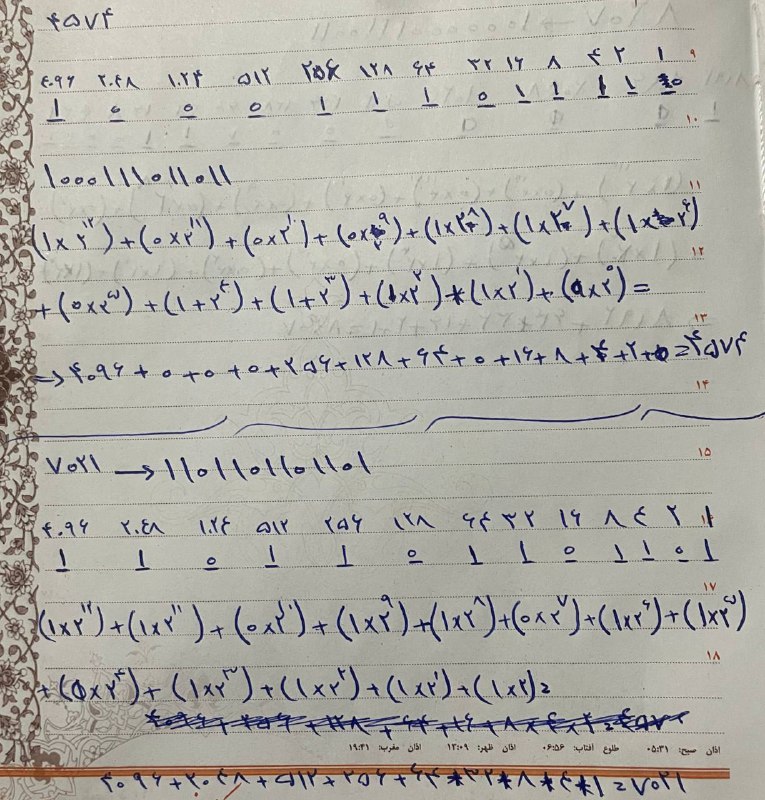 ۴۵۷۴
۴۰۹۶ ۲۰۴۸ ۱۰۲۴ ۵۱۲ ۲۵۶ ۱۲۸ ۶۴ ۳۲ ۱۶ ۸ ۴ ۲ ۱ ۹
۱ ۰ ۰ ۰ ۱ ۱ ۱ ۰ ۱ ۱ ۱ ۱ ۰
۱۰
۱۰۰۰۱۱۱۰۱۱۰۱۱
۱۱
(۱×۲^۱۲)+(۰×۲^۱۱)+(۰×۲^۱۰)+(۰×۲^۹)+(۱×۲^۸)+(۱×۲^۷)+(۱×۲^۶)
۱۲
+(۰×۲^۵)+(۱+۲^۴)+(۱+۲^۳)+(۱×۲^۲)+(۱×۲^۱)+(۰×۲^۰)=
۱۳
→۴۰۹۶+۰+۰+۰+۲۵۶+۱۲۸+۶۴+۰+۱۶+۸+۴+۲+۰=۴۵۷۴
۱۴
۱۵
۷۰۲۱ → ۱۱۰۱۱۰۱۱۰۱۱۰۱
۴۰۹۶ ۲۰۴۸ ۱۰۲۴ ۵۱۲ ۲۵۶ ۱۲۸ ۶۴ ۳۲ ۱۶ ۸ ۴ ۲ ۱
۱ ۱ ۰ ۱ ۱ ۰ ۱ ۱ ۰ ۱ ۱ ۰ ۱
۱۷
(۱×۲^۱۲)+(۱×۲^۱۱)+(۰×۲^۱۰)+(۱×۲^۹)+(۱×۲^۸)+(۰×۲^۷)+(۱×۲^۶)+(۱×۲^۵)
۱۸
+(۰×۲^۴)+(۱×۲^۳)+(۱×۲^۲)+(۱×۲^۱)+(۱×۲)=
اذان صبح: ۰۵:۳۱ طلوع آفتاب: ۰۶:۵۶ اذان ظهر: ۱۲:۰۹ اذان مغرب: ۱۹:۳۱
۴۰۹۶+۲۰۴۸+۵۱۲+۲۵۶+۶۴+۳۲+۸+۴+۱=۷۰۲۱